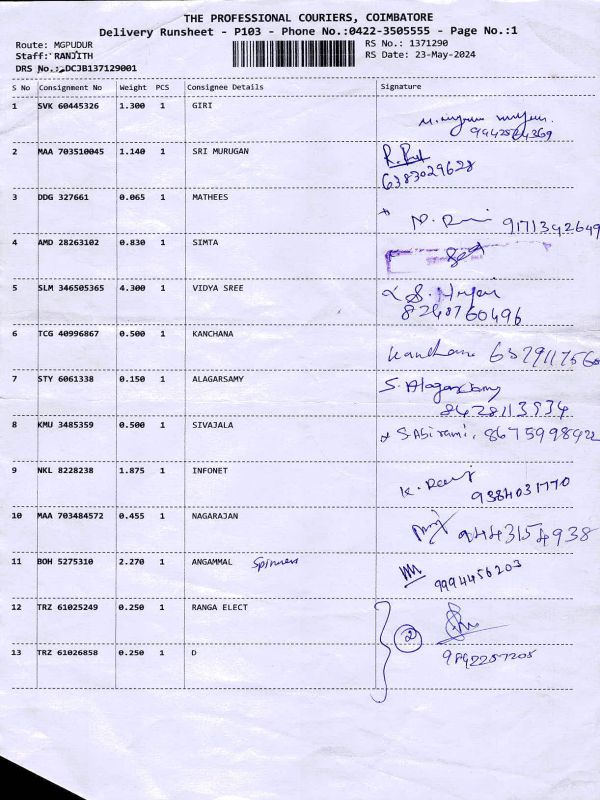 THE PROFESSIONAL COURIERS, COIMBATORE
Delivery Runsheet - P103 - Phone No.:0422-3505555 - Page No.:1
Route: MGPUDUR RS No.: 1371290
Staff: RANJITH RS Date: 23-May-2024
DRS No.: DCJB137129001
S No Consignment No Weight PCS Consignee Details Signature
1 SVK 60445326 1.300 1 GIRI
2 MAA 703510045 1.140 1 SRI MURUGAN
6383029628
3 DDG 327661 0.065 1 MATHEES
9171342649
4 AMD 28263102 0.830 1 SIMTA
5 SLM 346505365 4.300 1 VIDYA SREE
8248760496
6 TCG 40996867 0.500 1 KANCHANA
Kanchana
7 STY 6061338 0.150 1 ALAGARSAMY S. Alagarsamy
8428113934
8 KMU 3485359 0.500 1 SIVAJALA S. Abirami, 8675998922
9 NKL 8228238 1.875 1 INFONET
9384031770
10 MAA 703484572 0.455 1 NAGARAJAN
9443154938
11 BOH 5275310 2.270 1 ANGAMMAL Spinners
9994456203
12 TRZ 61025249 0.250 1 RANGA ELECT
2
13 TRZ 61026858 0.250 1 D